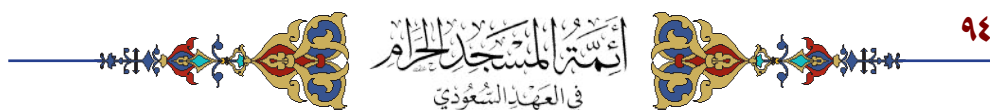 ٩٤
أئمة المسجد الحرام
في العهد السعودي